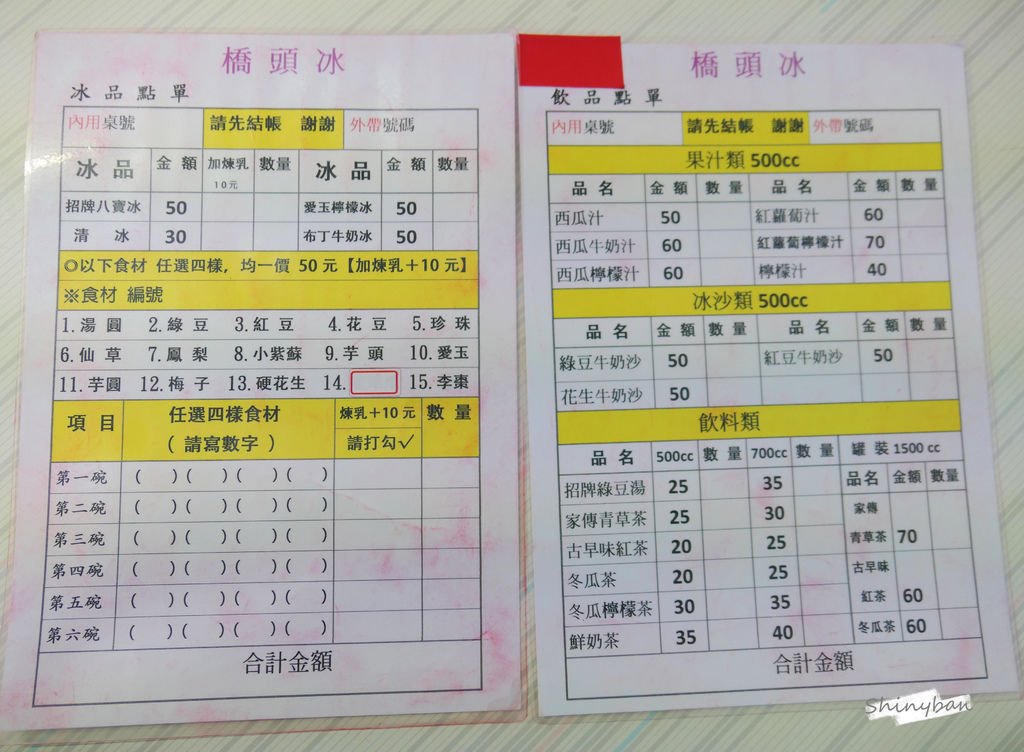 橋頭冰
冰品點單
內用桌號 請先結帳 謝謝 外帶號碼
冰品 金額 加煉乳10元 數量 冰品 金額 數量
招牌八寶冰 50 愛玉檸檬冰 50
清冰 30 布丁牛奶冰 50
◎以下食材 任選四樣，均一價 50 元【加煉乳＋10 元】
※食材 編號
1.湯圓 2.綠豆 3.紅豆 4.花豆 5.珍珠
6.仙草 7.鳳梨 8.小紫蘇 9.芋頭 10.愛玉
11.芋圓 12.梅子 13.硬花生 14. 15.李棗
項目 任選四樣食材 煉乳＋10元 數量
（請寫數字） 請打勾✓
第一碗 ( ) ( ) ( ) ( )
第二碗 ( ) ( ) ( ) ( )
第三碗 ( ) ( ) ( ) ( )
第四碗 ( ) ( ) ( ) ( )
第五碗 ( ) ( ) ( ) ( )
第六碗 ( ) ( ) ( ) ( )
合計金額
橋頭冰
飲品點單
內用桌號 請先結帳 謝謝 外帶號碼
果汁類 500cc
品名 金額 數量 品名 金額 數量
西瓜汁 50 紅蘿蔔汁 60
西瓜牛奶汁 60 紅蘿蔔檸檬汁 70
西瓜檸檬汁 60 檸檬汁 40
冰沙類 500cc
品名 金額 數量 品名 金額 數量
綠豆牛奶沙 50 紅豆牛奶沙 50
花生牛奶沙 50
飲料類
品名 500cc 數量 700cc 數量 罐裝 1500 cc
招牌綠豆湯 25 35 品名 金額 數量
家傳青草茶 25 30 家傳青草茶 70
古早味紅茶 20 25 古早味紅茶 60
冬瓜茶 20 25 冬瓜茶 60
冬瓜檸檬茶 30 35
鮮奶茶 35 40
合計金額
Shinyban